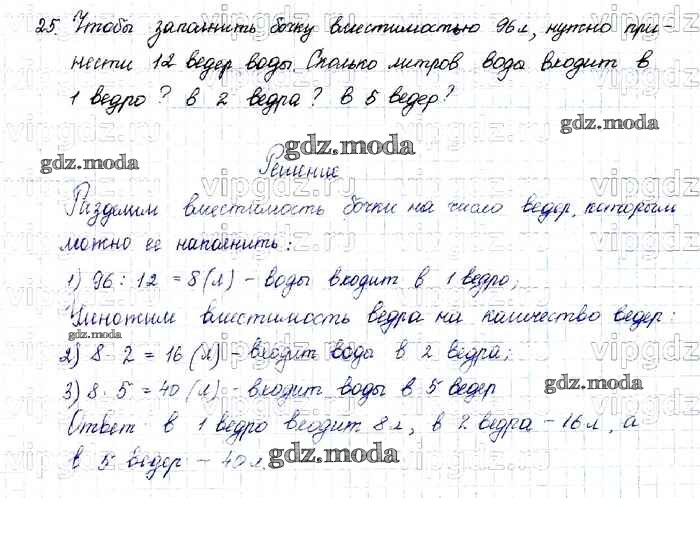 25. Чтобы заполнить бочку вместимостью 96 л, нужно при-
нести 12 ведер воды. Сколько литров воды входит в
1 ведро? в 2 ведра? в 5 ведер?
gdz.moda
gdz.moda
gdz.moda
Решение
Разделим вместимость бочки на число ведер, которым
можно ее наполнить:
1) 96 : 12 = 8 (л) - воды входит в 1 ведро;
Умножим вместимость ведра на количество ведер:
gdz.moda
2) 8 · 2 = 16 (л) - входит воды в 2 ведра;
3) 8 · 5 = 40 (л) - входит воды в 5 ведер
gdz.moda
Ответ в 1 ведро входит 8 л, в 2 ведра - 16 л, а
в 5 ведер - 40 л.
gdz.moda
vipgdz.ru